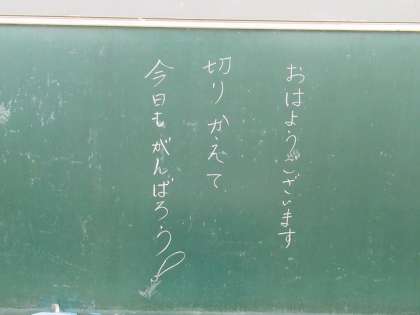 おはようございます
切りかえて
今日もがんばろう!